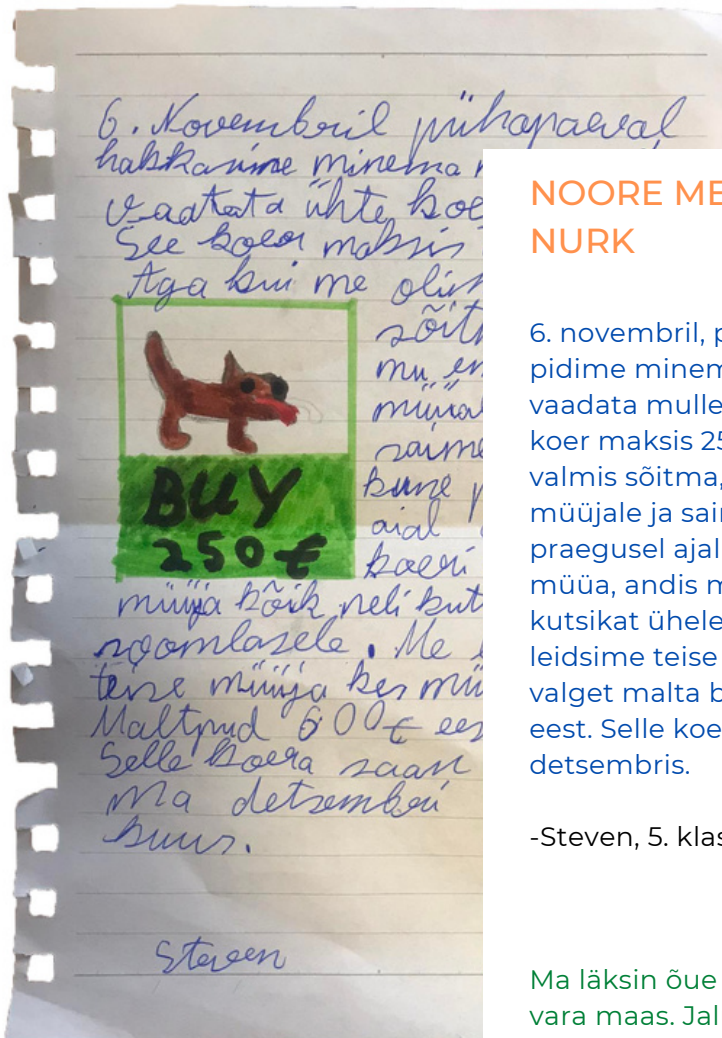 6. Novembril pühapaeval
hakkasime minema
vaadtata ühte koe
See koer maksis
Aga kui me
sõit
mu
saime
aial
koeri
BUY
250 €
müüja kõik neli kut
roomlasele. Me
teise müüja kes mü
Maltpud 600€ ees
Selle koera saan
ma detsembri
kuus.
Steven
NOORE ME
NURK
6. novembril, p
pidime minem
vaadata mulle
koer maksis 25
valmis sõitma,
müüjale ja sain
praegusel ajal
müüa, andis m
kutsikat ühele
leidsime teise
valget malta b
eest. Selle koe
detsembris.
-Steven, 5. klas
Ma läksin õue
vara maas. Jal